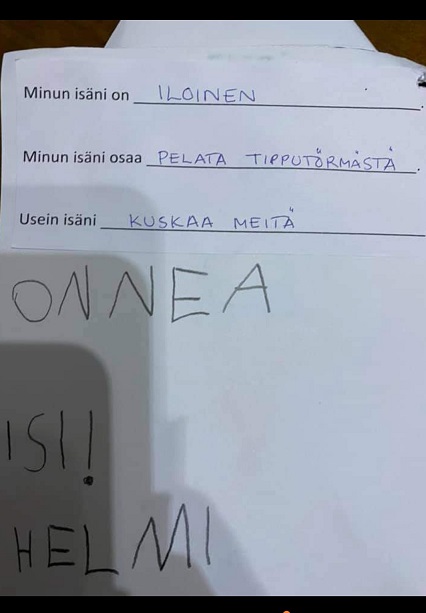 Minun isäni on ILOINEN.
Minun isäni osaa PELATA TIPPUTÖRMÄSTÄ.
Usein isäni KUSKAA MEITÄ
ONNEA
ISI!
HELMI